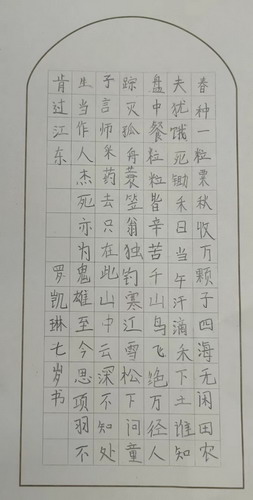 春种一粒粟秋收万颗子四海无闲田农
夫犹饿死锄禾日当午汗滴禾下土谁知
盘中餐粒粒皆辛苦千山鸟飞绝万径人
踪灭孤舟蓑笠翁独钓寒江雪松下问童
子言师采药去只在此山中云深不知处
生当作人杰死亦为鬼雄至今思项羽不
肯过江东 罗凯琳七岁书